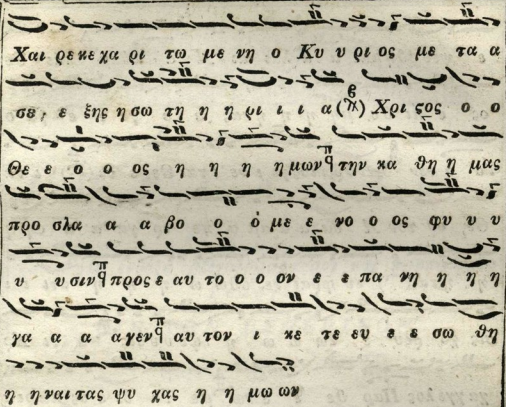 Χαι ρε κε χα ρι τω με νη ο Κυ υ ρι ος με τα α
σε, ε ξης η σω τη η η ρι ι ι α Χρι ϛος ο ο
Θε ε ο ο ος η η η η μων την κα θη η μας
προ σλα α α βο ο ὁ με ε νο ο ος φυ υ υ
υ υ σιν προς ε αυ το ο ο ον ε ε πα νη η η η
γα α α α γεν αυ τον ι κε τε ευ ε ε σω θη
η η ναι τας ψυ χας η η μω ων